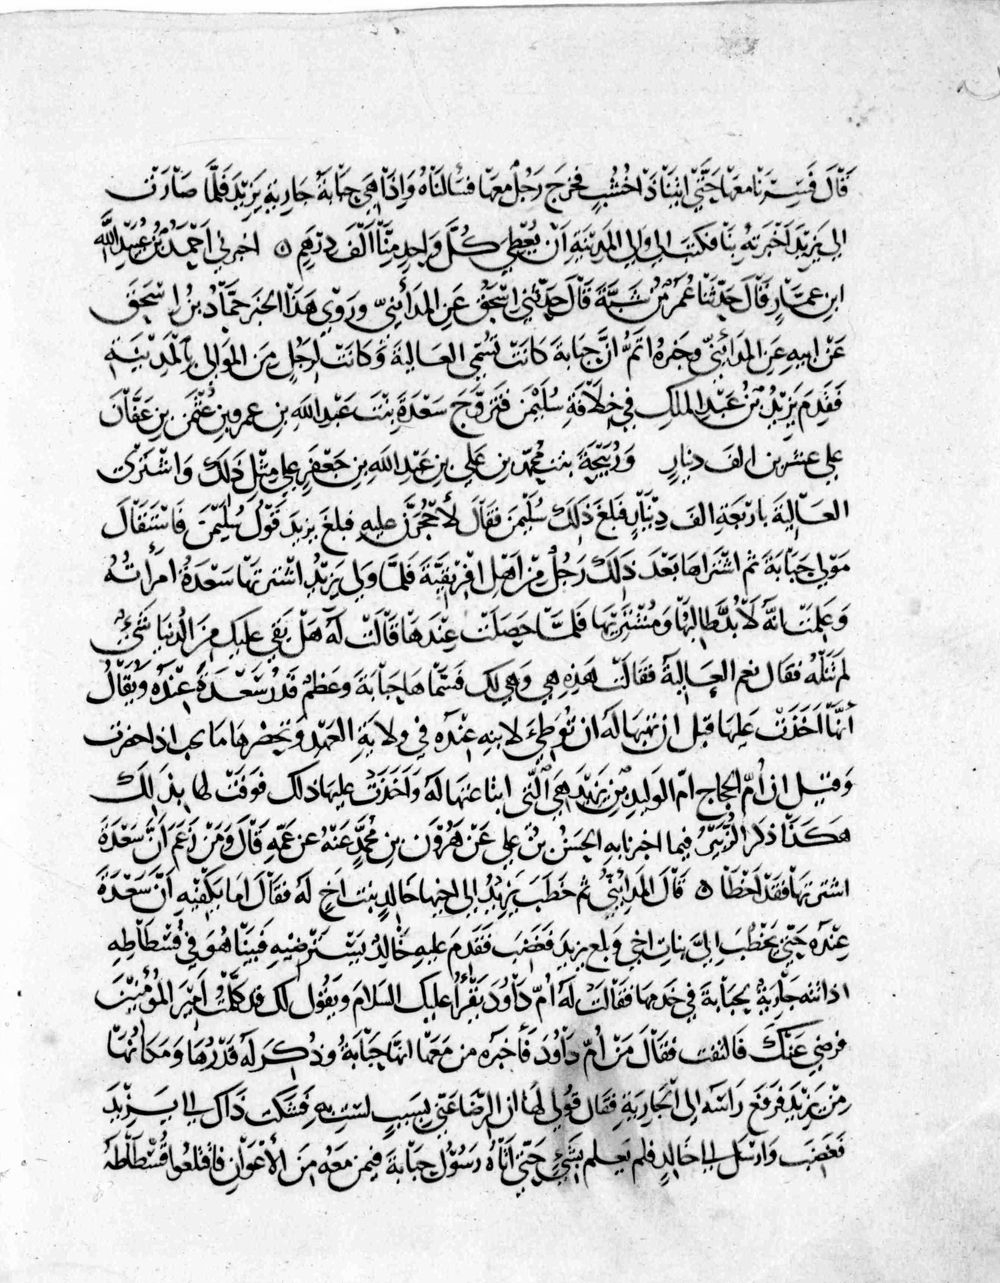 قَالَ فَسِرْنَا معهَا حَتَّى اتينَا ذَا خُشُبٍ فخرَجَ رَجُلٌ معهَا فسَالنَاهُ وَاِذَا هِيَ حبَابَةُ جَارِيةِ يَزِيْدَ فلمَّا صَارَتْ
الى يَزِيْدَ اَخْبَرَتْهُ بِنَا فكتبَ الى والى المَدِيْنَةِ اَنْ يُعْطِي كُلَّ وَاحِدٍ مِنَّا اَلْفَ دِرْهَمٍ ۞ اخبرني اَحْمَدُ بْنُ عُبَيْدِ اللَّهِ
ابنِ عمَّارٍ قَالَ حَدَّثنَا عُمَرُ بْنُ شَبَّةَ قَالَ حَدَّثني اِسْحَقُ عَنِ المَدَائِنِيِّ وَرَوَى هَذَا الخبرَ حمَّادُ بنُ اِسْحَقَ
عَنْ ابيهِ عَنِ المَدَائِنِيِّ وخبرهُ اتمُّ انَّ حبَابةَ كانتْ تُسَمَّى العَالِيَةَ وَكَانَتْ لرَجُلٍ مِنَ المَوَالى بِالْمَدِيْنَةِ
فَقَدِمَ يَزِيْدُ بْنُ عَبْدِ المَلِكِ فِي خِلَافَةِ سُلَيْمٰنَ فَتَزَوَّجَ سَعْدَةَ بِنْتَ عَبْدِ اللهِ بنِ عمروبنِ عُثْمٰنَ بنِ عَفَّانَ
على عشرين الف دينارٍ وَرُبَيْحَةَ بنت مُحَمّد بن عَلي بن عَبْدِ اللهِ بنِ جَعْفَرٍ على مِثْلِ ذَلكَ وَاشْتَرَى
العَالِيَةَ باربَعَةِ الف دِيْنَارٍ فبَلغَ ذَلكَ سُلَيْمٰنَ فقَالَ لَأَحْجُرَنَّ عليهِ فبلغَ يزيدَ قَوْلُ سُلَيْمٰنَ فَاسْتَقَالَ
مَوْلى حَبَابَةَ ثم اشْتَراهَا بَعْدَ ذَلكَ رَجُلٌ مِنْ اَهْلِ افْرِيقيَّةَ فلمَّا ولي يَزِيْدُ اشترتهَا سَعْدَةُ امرَأتُهُ
وَعَلِمَتْ انّهُ لَا بُدَّ طَالِبُهَا وَمُشْتَرِيهَا فلمَّا حصَلتْ عِنْدَهَا قالَتْ لَهُ هَلْ بَقِيَ عليكَ مِنَ الدُّنيَا شَيْءٌ
لم تَنَلْهُ فقال نعم العَالِيَةُ فقَالَتْ هَذِهِ هِي وَهِيَ لكَ فسَمّاهَا حبَابَةَ وعَظم قَدْرُ سَعْدَةَ عِنْدَهُ وَيُقَالُ
اَنَّهَا اَخَذَتْ عَليهَا قبلَ ان تهبَهَا لَهُ ان تُوَطّئَ لابنها عِنْدَهُ في ولايَةِ العَهْدِ وتحضرَها مَا يحب اذا حضرت
وَقيلَ انّ اُمّ الحجّاجِ امّ الوَليدِ بْنِ يَزِيْدَ هِيَ الّتي ابتاعَتهَا لَهُ وَاَخَذَتْ عليها ذلك فوَفَتْ لهَا بِذَلكَ
هَكَذَا ذكرَ الزُّبَيْرُ فيما اخبرَنَا بِهِ الحَسَنُ بْنُ عَلي عَنْ هَرُوْنَ بنِ مُحَمَّدٍ عَنْهُ عن عَمِّهِ قَالَ وَمَنْ زَعَمَ اَنّ سَعْدَةَ
اشترتهَا فقَدْ اَخْطَا ۞ قَالَ المَدَائِنِيُّ ثم خطَبَ يَزِيْدُ الى اخيها خَالدٍ بنتَ اَخٍ لَهُ فقَالَ اما يَكْفيْهِ اَنَّ سَعْدَةَ
عِنْدَهُ حَتَّى يَخْطُبَ اِليَّ بَناتِ اَخِي وَبلغ يزيدَ فغَضِبَ فقَدمَ عليهِ خَالدٌ يَسْتَرْضيْهِ فبَيْنَا هُوَ فِي فُسْطَاطِهِ
اذ اتته جَاريَةٌ لحبَابَةَ في خدَمهَا فقَالَتْ لَهُ اُمُّ دَاوُدَ تقْرَأُ عَليكَ السَلامَ ويقُول لكَ قد كَلَّمْتُ اَميْرَ المُؤمنِيْنَ
فرضِيَ عَنْكَ فالتفتَ فقَالَ مَنْ اُمّ دَاوُدَ فَأخبَرَه من مَعَهَا انّها حَبَابَةُ وَذُكِرَ لَهُ قَدْرُهَا وَمَكَانُهَا
مِنْ يَزِيْدَ فرَفعَ رَاسَهُ الى الجَاريَةِ فقَال قُولي لهَا ان الرِّضَا عَنّي بسَبَبٍ لستِ بِهِ فشَكتْ ذَاكَ الى يَزِيْدَ
فغَضِبَ وَارْسَل الى خَالدٍ فلم يَعلم بشَيءٍ حَتَّى اتَاهُ رَسُوْلُ حبَابَةَ فيمن مَعَهُ مِنَ الاَعْوَانِ فَاقتلعُوا فُسْطَاطَهُ